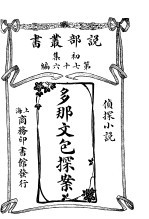 說部叢書
初集
第七十六編
偵探小說
多那文包探案
上海
商務印書館發行